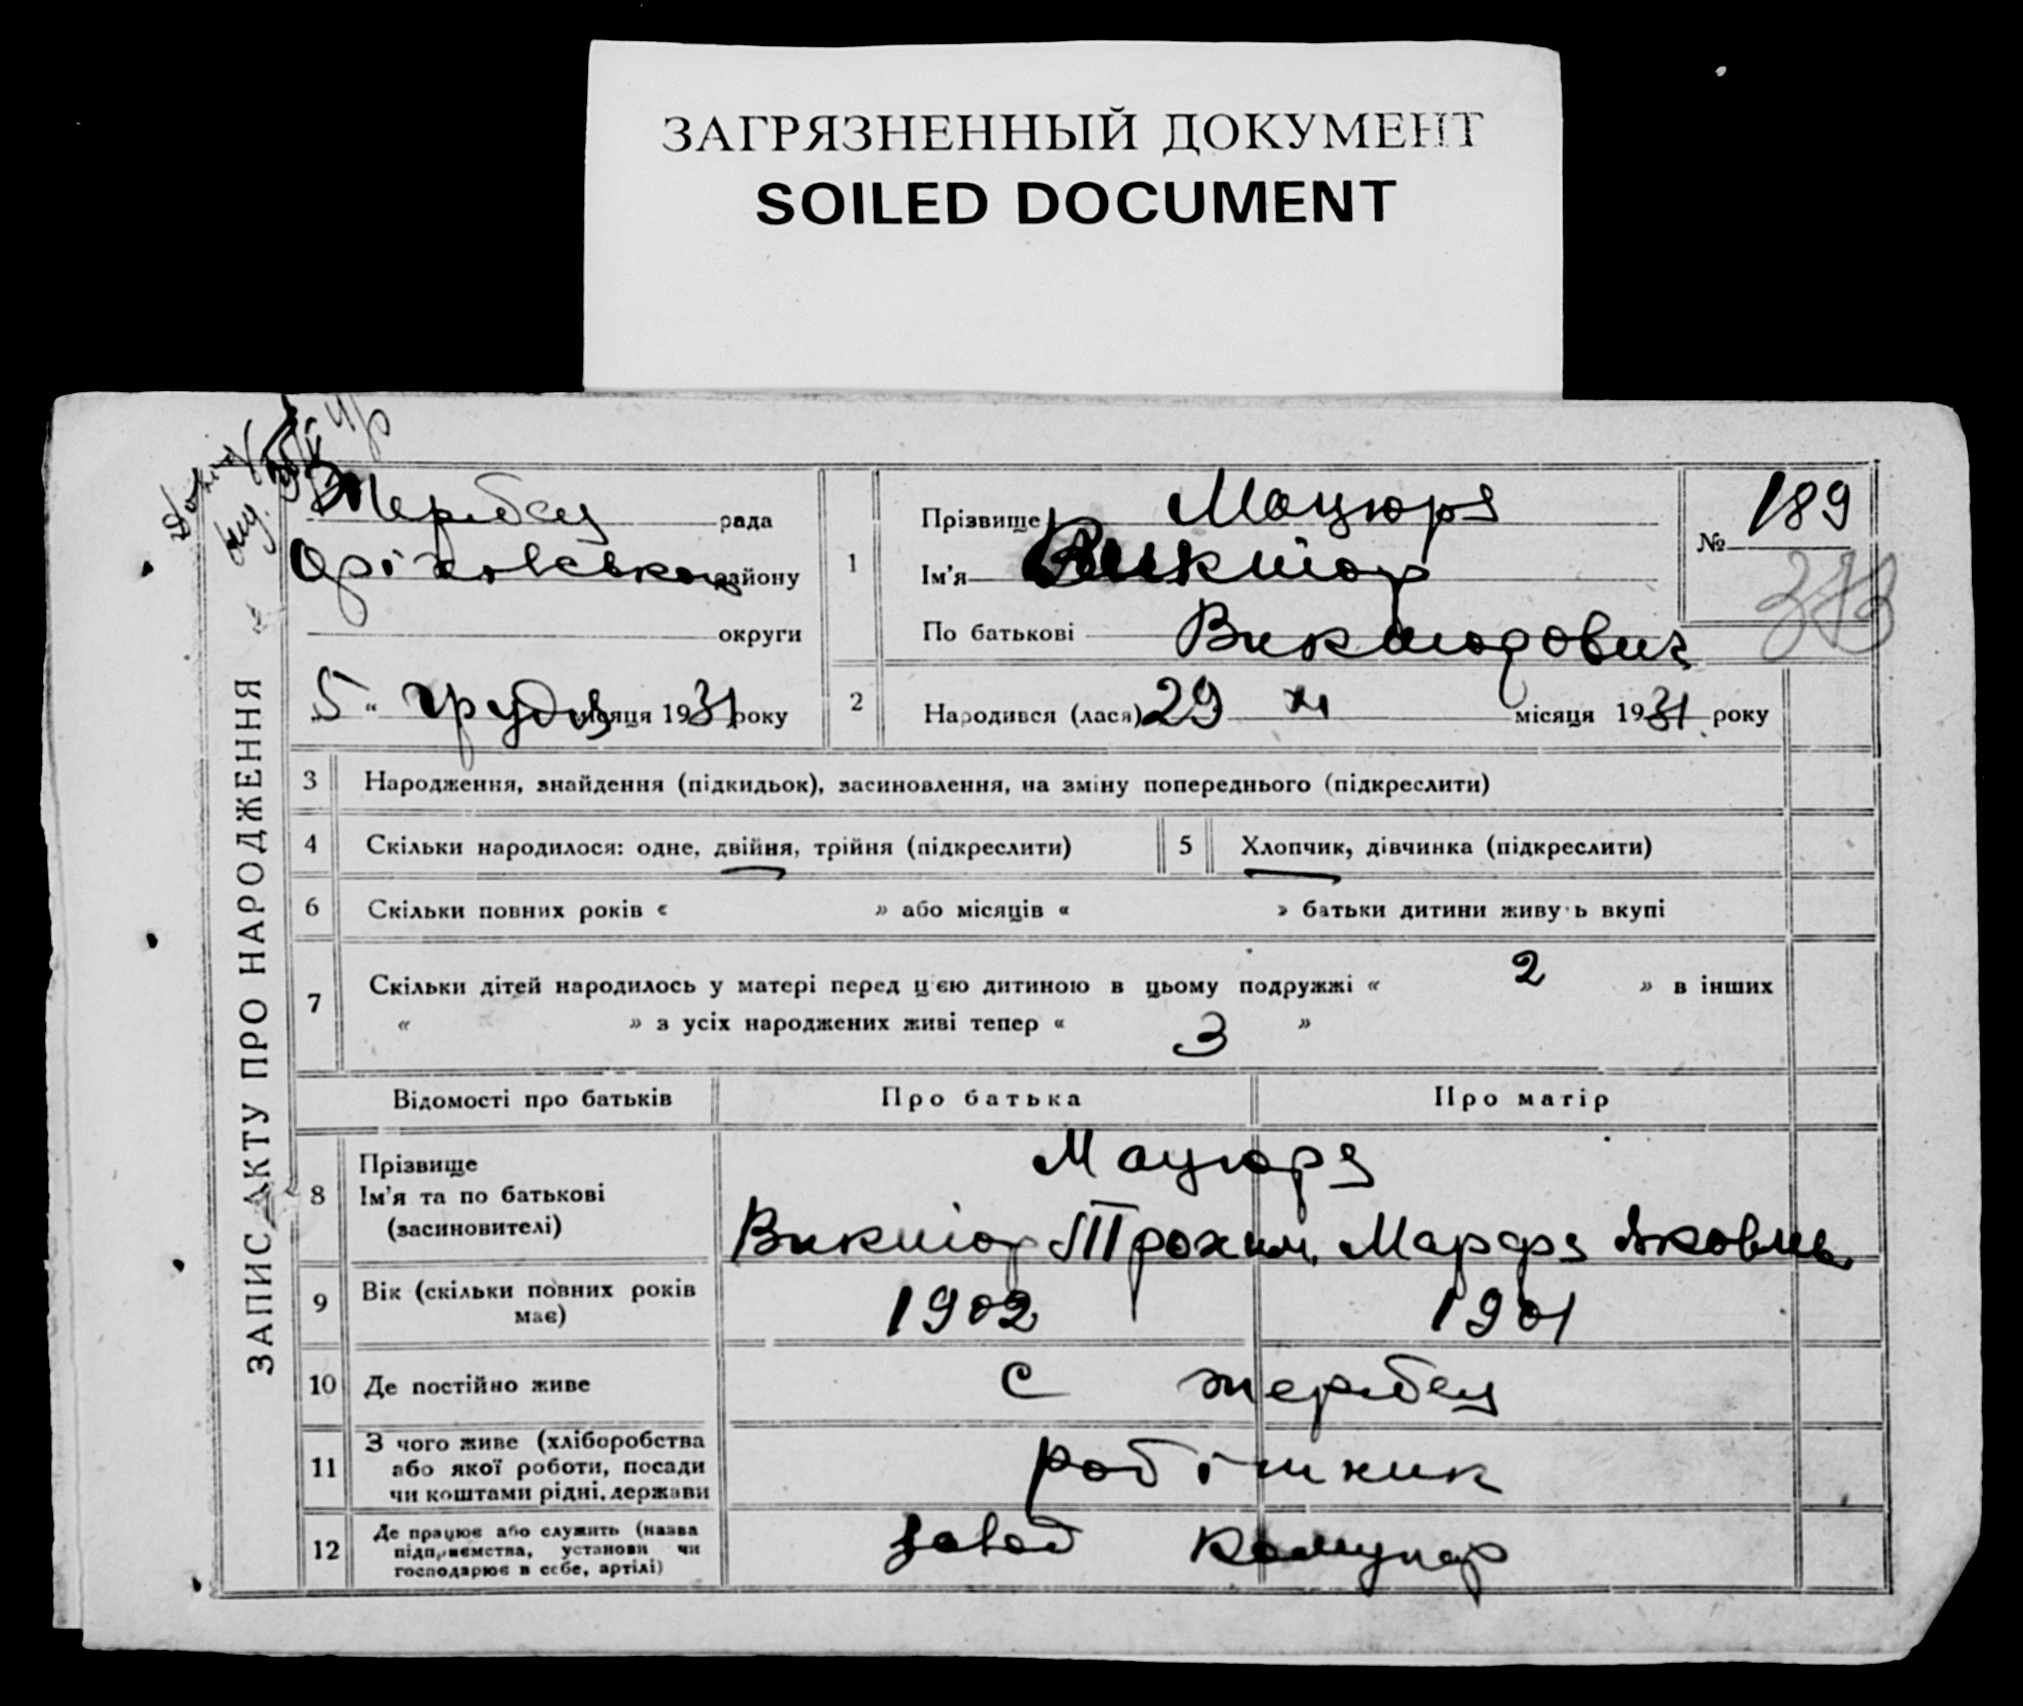 ЗАГРЯЗНЕННЫЙ ДОКУМЕНТ
SOILED DOCUMENT
ЗАПИС АКТУ ПРО НАРОДЖЕННЯ
Жеребец рада
Оріхівського району
округи
5 " грудня місяця 1931 року
1
Прізвище Мацюря
Ім'я Виктор
По батькові Викторович
№ 189
2 Народився (лася) 29 XI місяця 1931 року
3 Народження, знайдення (підкидьок), засиновлення, на зміну попереднього (підкреслити)
4 Скільки народилося: одне, двійня, трійня (підкреслити)
5 Хлопчик, дівчинка (підкреслити)
6 Скільки повних років « » або місяців « » батьки дитини живуть вкупі
7 Скільки дітей народилось у матері перед цєю дитиною в цьому подружжі « 2 » в інших
« » з усіх народжених живі тепер « 3 »
Відомості про батьків Про батька Про матір
8 Прізвище
Ім'я та по батькові
(засиновителі)
Мацюря
Виктор Трохим. Марфа Яковль
9 Вік (скільки повних років
має)
1902 1901
10 Де постійно живе с жеребец
11 З чого живе (хліборобства
або якої роботи, посади
чи коштами рідні, держави
робітник
12 Де працює або служить (назва
підприємства, установи чи
господарює в себе, артілі)
завод Комунар